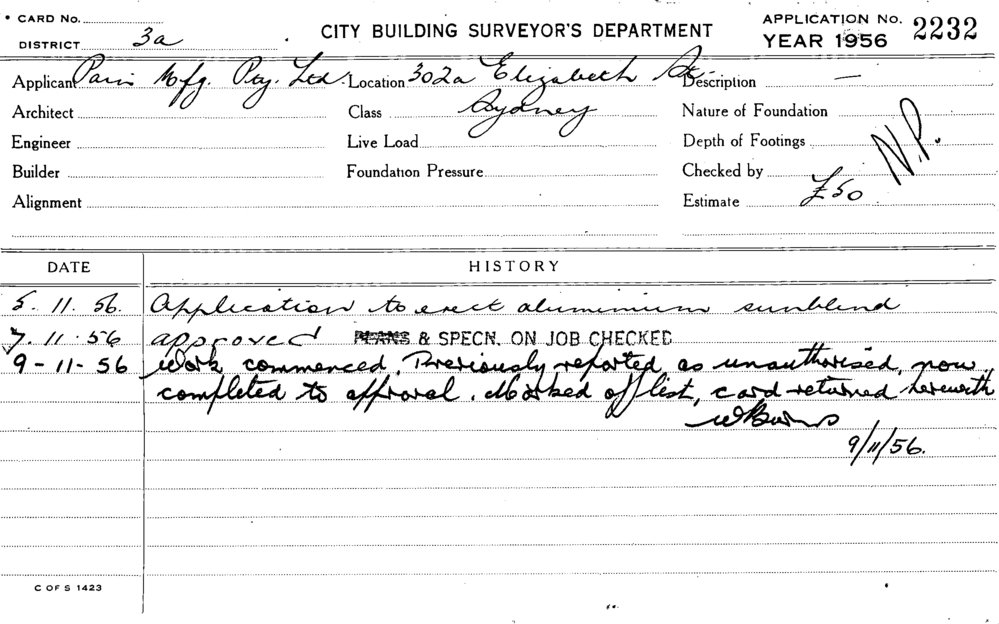 CARD No.
DISTRICT 3a
CITY BUILDING SURVEYOR'S DEPARTMENT
APPLICATION No. 2232
YEAR 1956
Applicant Paris Mfg. Pty. Ltd. Location 302a Elizabeth St. Description —
Architect Class Sydney Nature of Foundation
Engineer Live Load Depth of Footings N.P.
Builder Foundation Pressure Checked by
Alignment Estimate £50
DATE HISTORY
5. 11. 56. Application to erect aluminium sunblind
7. 11. 56 approved PLANS & SPECN. ON JOB CHECKED
9-11-56 Work commenced. Previously reported as unauthorised, now
completed to approval. Marked off list, card returned herewith
WBurns
9/11/56.
C OF S 1423